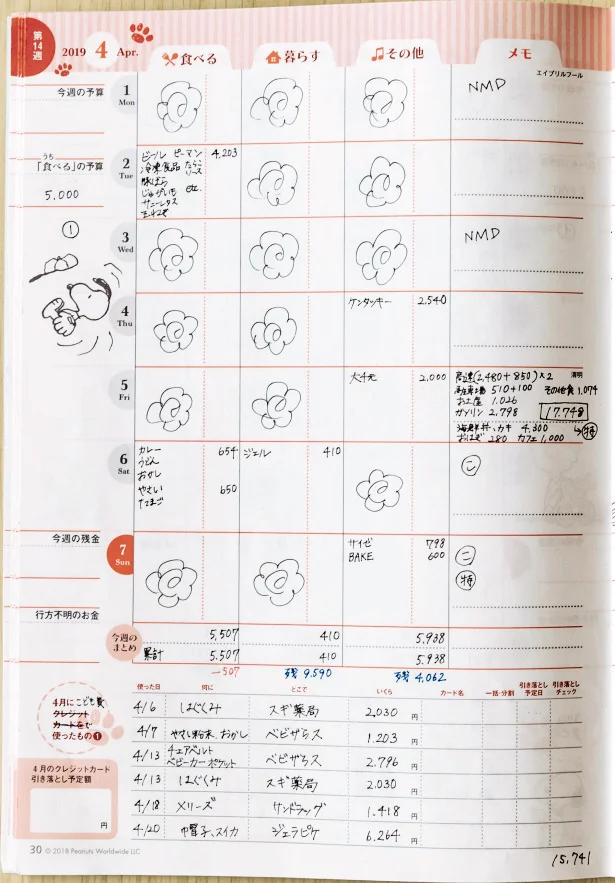 第14週
2019 4 Apr.
食べる
暮らす
その他
メモ
今週の予算
1 Mon
エイプリルフール
NMD
うち
「食べる」の予算
5,000
2 Tue
ビール ピーマン 4,203
冷凍食品 たらこソース
豚ばら
じゃがいも etc.
サニーレタス
たまねぎ
①
3 Wed
NMD
4 Thu
ケンタッキー 2,540
5 Fri
2,000
清明
高速(2,480+850)×2
510+100 その他食 1,074
お土産 1,026
ガソリン 2,798
17,748
海鮮丼、カキ 4,300 → 特
おはぎ 280 カフェ 1,000
6 Sat
カレー 654
うどん
おかし
やさい 650
たまご
ジェル 410
こ
今週の残金
7 Sun
サイゼ 798
BAKE 600
こ
特
行方不明のお金
今週のまとめ 5,507 410 5,938
累計 5,507 410 5,938
-507 残 9,590 残 4,062
使った日 何に どこで いくら カード名 一括・分割 引き落とし予定日 引き落としチェック
4月にこども費
クレジット
カードをで
使ったもの❶
4/6 はぐくみ スギ薬局 2,030 円
4/7 やさい粉末、おかし ベビザらス 1,203 円
4/13 チェアベルト ベビーカーポケット ベビザらス 2,796 円
4/13 はぐくみ スギ薬局 2,030 円
4/18 メリーズ サンドラッグ 1,418 円
4/20 帽子、スイカ ジェラピケ 6,264 円
4月のクレジットカード
引き落とし予定額
円
30 © 2018 Peanuts Worldwide LLC
15,741